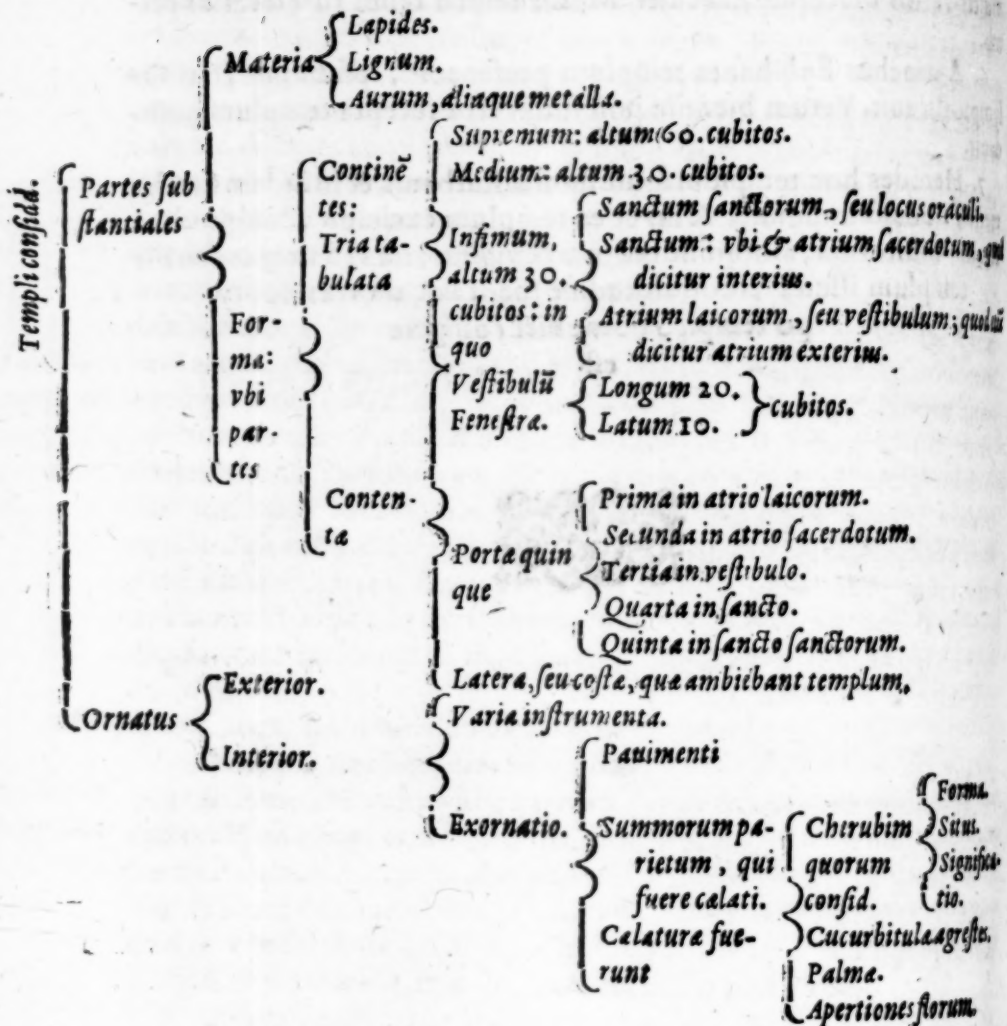 Templi consid̄d.
Partes sub
stantiales
Materia
Lapides.
Lignum.
Aurum, aliaque metalla.
For-
ma:
vbi
par-
tes
Continē
tes:
Tria ta-
bulata
Supremum: altum 60. cubitos.
Medium: altum 30. cubitos.
Infimum,
altum 30.
cubitos: in
quo
Sanctum sanctorum, seu locus oraculi.
Sanctum: vbi & atrium sacerdotum, qui
dicitur interius.
Atrium laicorum, seu vestibulum, quod
dicitur atrium exterius.
Conten-
tæ
Vestibulū
Fenestræ.
Longum 20.
Latum 10.
cubitos.
Portæ quin
que
Prima in atrio laicorum.
Secunda in atrio sacerdotum.
Tertia in vestibulo.
Quarta in sancto.
Quinta in sancto sanctorum.
Latera, seu costæ, quæ ambiebant templum.
Ornatus
Exterior.
Interior.
Varia instrumenta.
Exornatio.
Pauimenti
Summorum pa-
rietum, qui
fuere cælati.
Cælaturæ fue-
runt
Cherubim
quorum
consid.
Forma.
Situs.
Significa-
tio.
Cucurbitulæ agrestes.
Palmæ.
Apertiones florum.